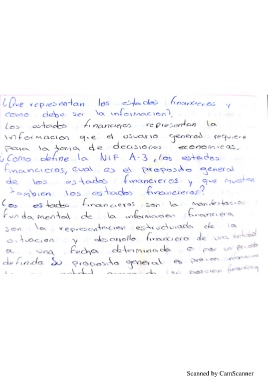 ¿Que representan los estados financieros y
como debe ser la información?
Los estados financieros representan la
información que el usuario general requiere
para la toma de decisiones economicas.
¿Como define la NIF A-3, los estados
financieros, cual es el proposito general
de los estados financieros y que muestran
tambien los estados financieros?
Los estados financieros son la manifestacion
fundamental de la informacion financiera
son la representacion estructurada de la
situacion y desarrollo financiero de una entidad
a una fecha determinada o por un periodo
definido su proposito general es
su posicion financiera
Scanned by CamScanner